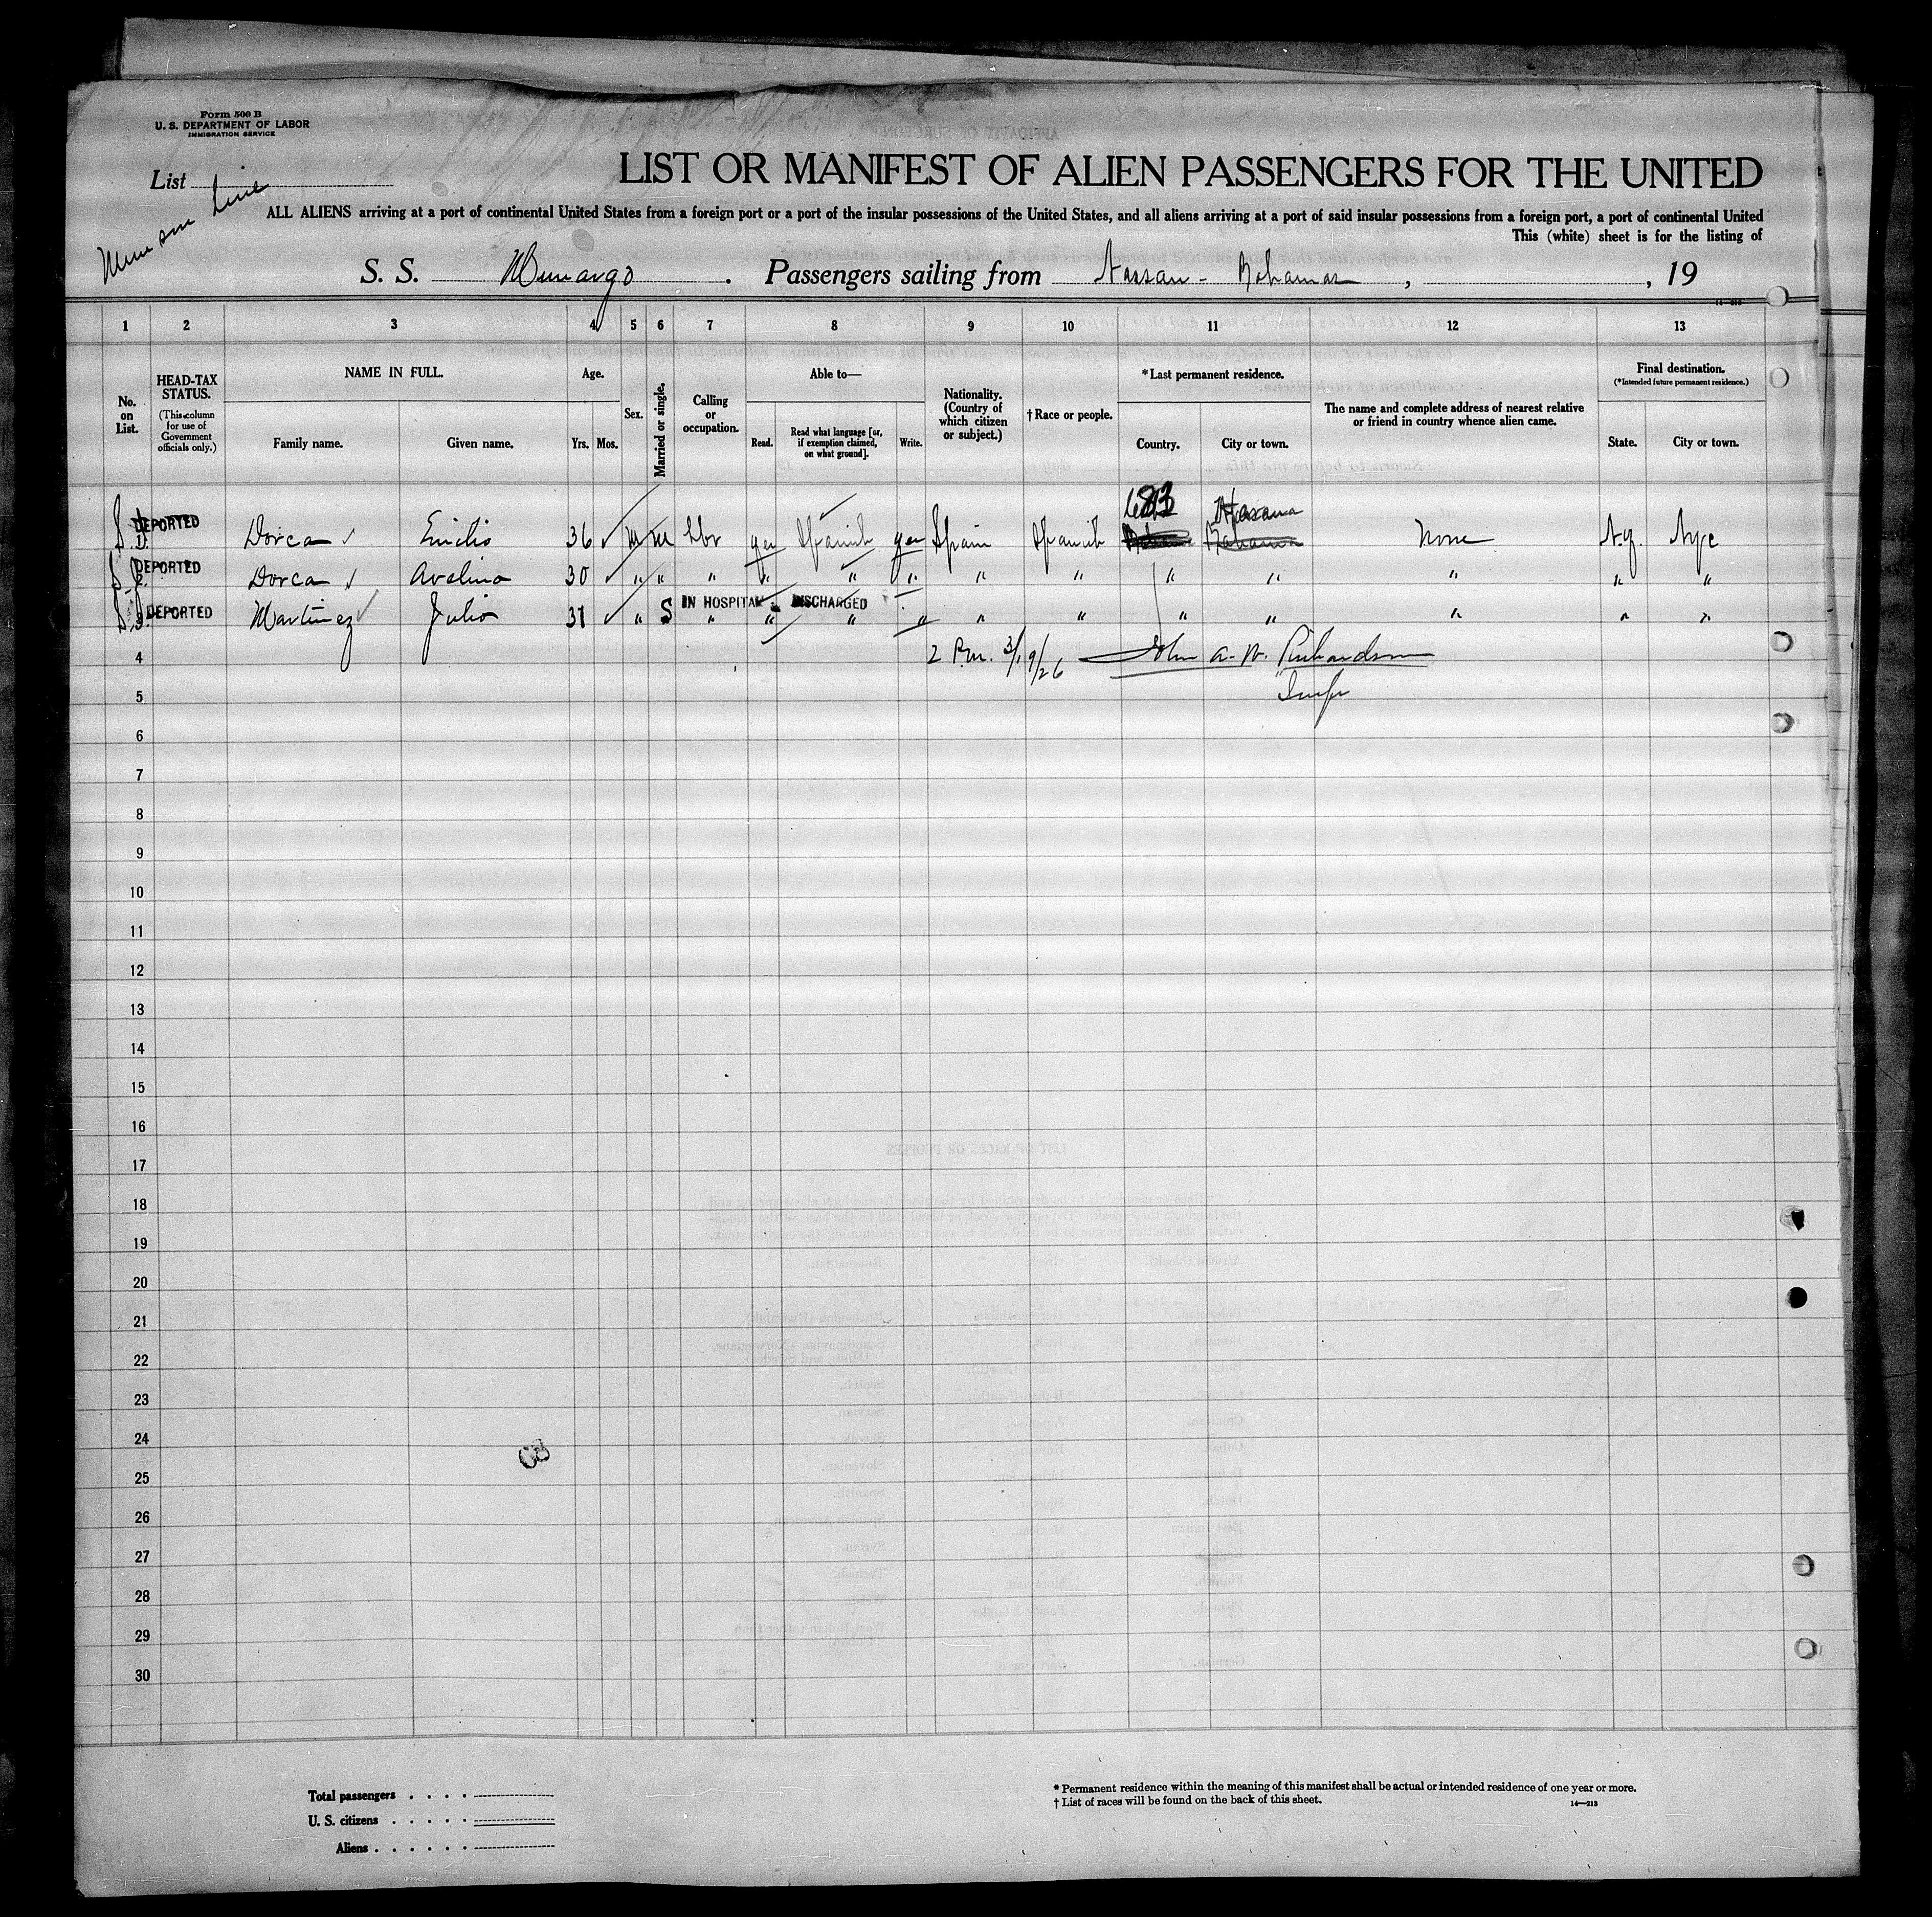 Form 500 B
U. S. DEPARTMENT OF LABOR
IMMIGRATION SERVICE
List
Munson Line
LIST OR MANIFEST OF ALIEN PASSENGERS FOR THE UNITED
ALL ALIENS arriving at a port of continental United States from a foreign port or a port of the insular possessions of the United States, and all aliens arriving at a port of said insular possessions from a foreign port, a port of continental United
This (white) sheet is for the listing of
S. S. Munargo. Passengers sailing from Nassau - Bahamas, , 19
14-213
1 2 3 4 5 6 7 8 9 10 11 12 13
No. on List.
HEAD-TAX STATUS.
(This column for use of Government officials only.)
NAME IN FULL.
Family name. Given name.
Age.
Yrs. Mos.
Sex.
Married or single.
Calling or occupation.
Able to—
Read. Read what language [or, if exemption claimed, on what ground]. Write.
Nationality. (Country of which citizen or subject.)
† Race or people.
*Last permanent residence.
Country. City or town.
The name and complete address of nearest relative or friend in country whence alien came.
Final destination.
(*Intended future permanent residence.)
State. City or town.
Havana
1 DEPORTED Dorca Emilio 36 M M Lbr yes Spanish yes Spain Spanish Bahama None N.Y. Nyc
2 DEPORTED Dorca Avelino 30 " " " " " " " " " " " " "
IN HOSPITAL DISCHARGED
3 DEPORTED Martinez Julio 31 " S " " " " " " " " " " "
4 2 P.M. 3/19/26 John A. W. Richardson
5 Insp
6
7
8
9
10
11
12
13
14
15
16
17
18
19
20
21
22
23
24
25
26
27
28
29
30
Total passengers . . . .
U. S. citizens . . . . .
Aliens . . . . . .
* Permanent residence within the meaning of this manifest shall be actual or intended residence of one year or more.
† List of races will be found on the back of this sheet.
14—213